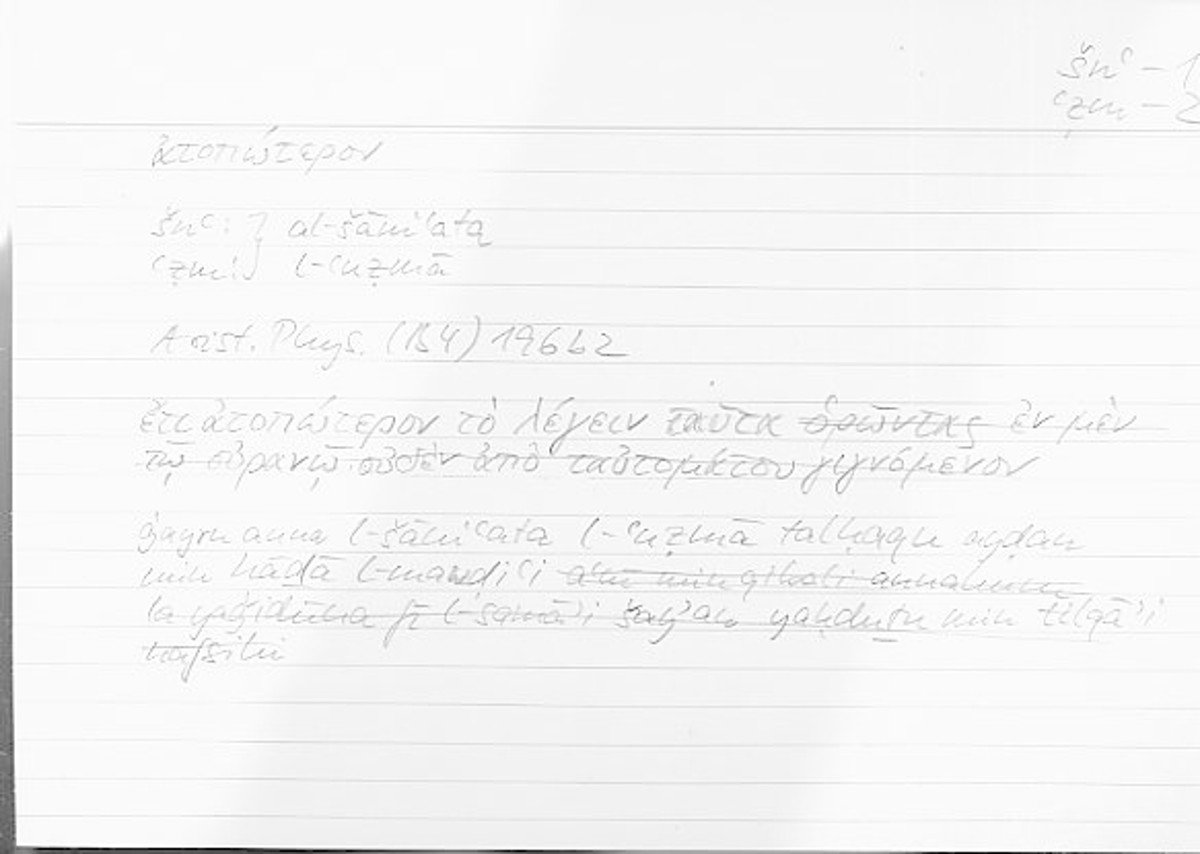 šnʿ – 1
ʿẓm – 2
ἀτοπώτερον
šnʿ: } al-šāniʿata
ʿẓm: } l-ʿuẓmā
Arist. Phys. (B4) 196b2
ἔτι ἀτοπώτερον τὸ λέγειν ταῦτα ὁρῶντας ἐν μὲν
τῷ οὐρανῷ οὐδὲν ἀπὸ ταὐτομάτου γιγνόμενον
ġayru anna l-šāniʿata l-ʿuẓmā talḥaqu ayḍan
min hāḏā l-mawḍiʿi aʿnī min qibali annahum
lā yaǧidūna fī l-samāʾi šayʾan yaḥduṯu min tilqāʾi
nafsihi